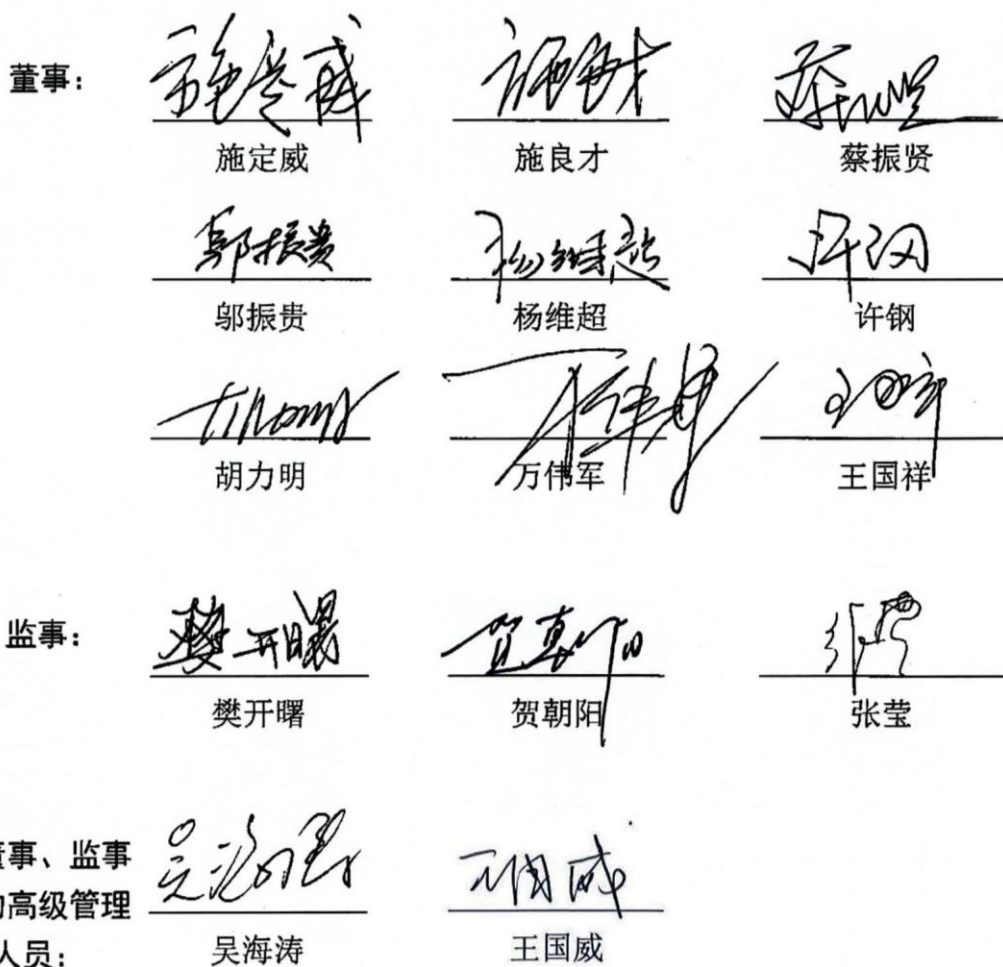 董事：
施定威 施良才 蔡振贤
邬振贵 杨维超 许钢
胡力明 万伟军 王国祥
监事：
樊开曙 贺朝阳 张莹
事、监事
高级管理
人员：
吴海涛 王国威